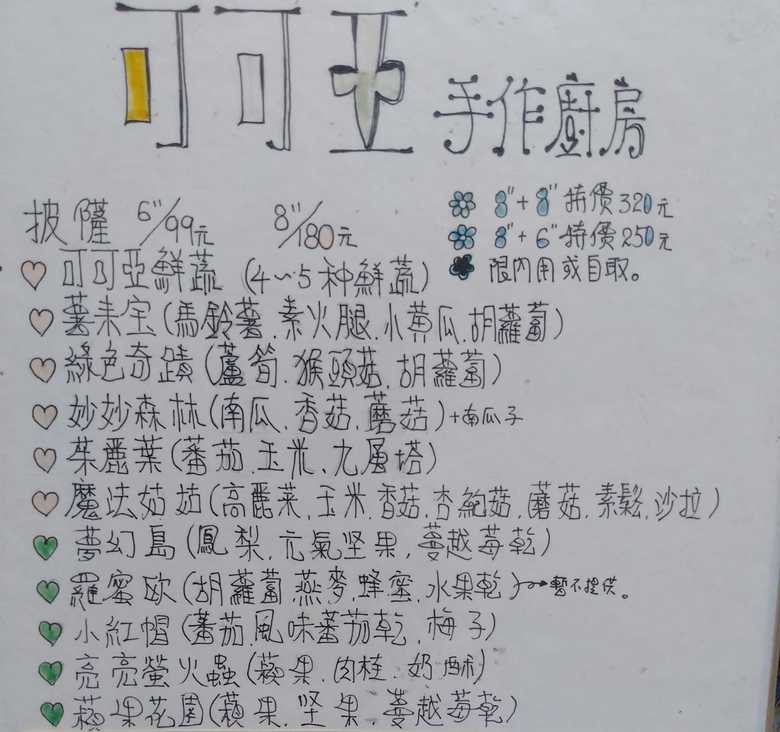 叮叮亞 手作廚房
披薩 6"/99元 8"/180元
8"+8"特價320元
8"+6"特價250元
限內用或自取。
叮叮亞鮮蔬(4~5种鮮蔬)
薯来宝(馬鈴薯.素火腿.小黄瓜.胡蘿蔔)
綠色奇蹟(蘆筍.猴頭菇.胡蘿蔔)
妙妙森林(南瓜.香菇.蘑菇)+南瓜子
茱麗葉(蕃茄.玉米.九層塔)
魔法菇菇(高麗菜.玉米.香菇.杏鮑菇.蘑菇.素鬆.沙拉)
夢幻島(鳳梨.元氣坚果.蔓越莓乾)
羅蜜欧(胡蘿蔔.燕麥.蜂蜜.水果乾)→暫不提供。
小紅帽(蕃茄.風味蕃茄乾.梅子)
亮亮螢火蟲(蘋果.肉桂.奶酥)
蘋果花園(蘋果.坚果.蔓越莓乾)